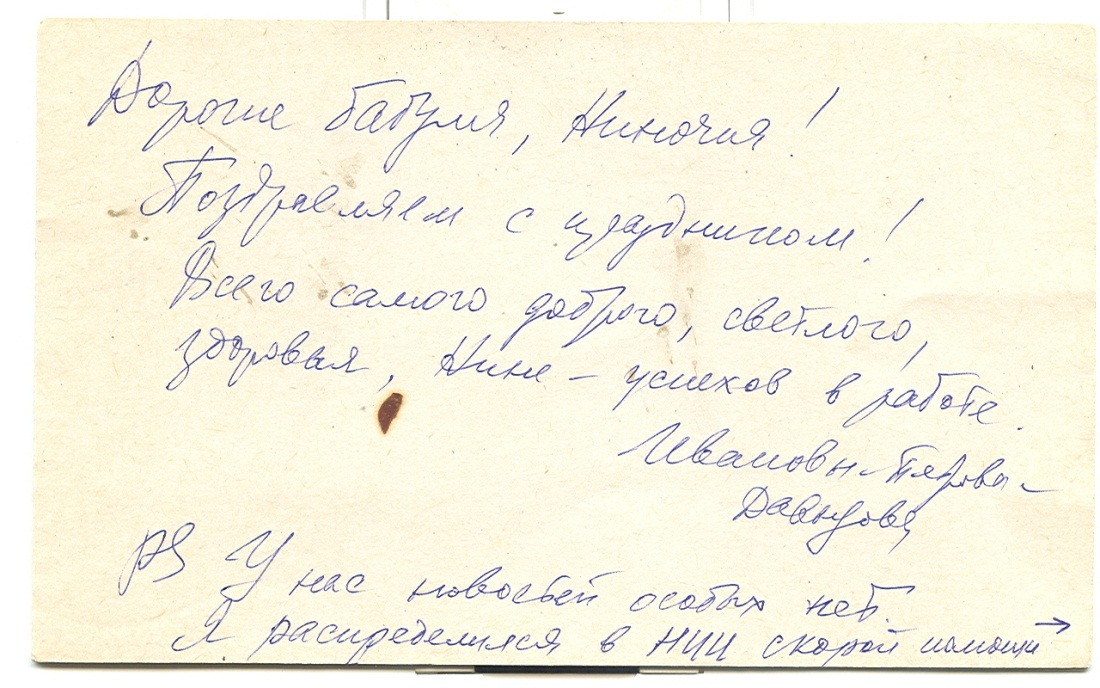 Дорогие бабуля, Ниночка!
Поздравляем с праздником!
Всего самого доброго, светлого,
здоровья, Нине – успехов в работе.
Ивановы-
Давыдова
PS У нас новостей особых нет.
Я распределился в НИИ скорой помощи →